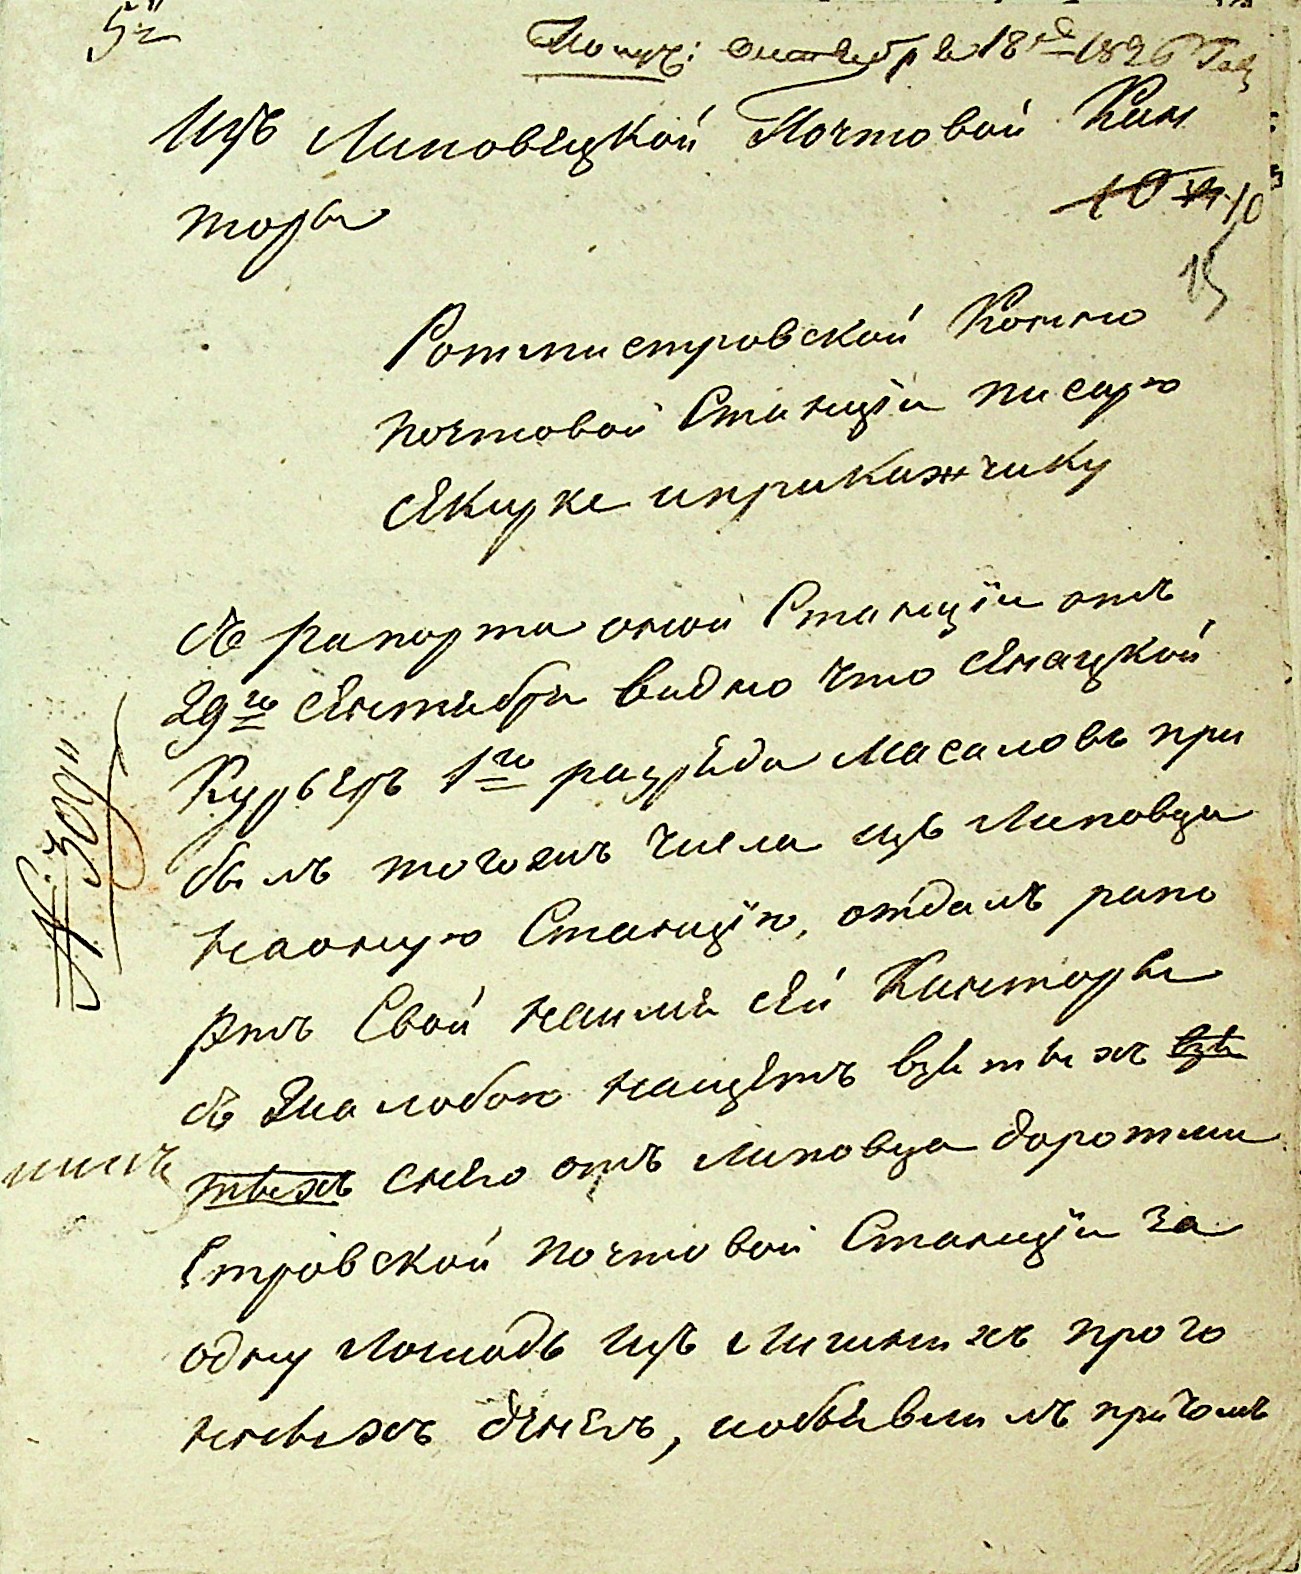 5й
Получ: октебря 18го 1826 Года
Изъ Липовецкой Почтовой Кон
торы
10
15
Ротмистровской Конно
почтовой Станціи писарю
Якирке иприкажчику
съ рапорта оной Станціи отъ
29го Сентебря видно что Сенацкой
Курьеръ 1го разряда Масаловъ при
былъ тогожъ числа изъ Липовца
наоную Станцію, отдалъ рапо
ртъ Свой наимя сей Канторы
съ жалобою нащетъ взятыхъ взя
тыхъ снего отъ Липовца доротми
стровской почтовой Станціи за
одну лошадь изъ лишнихъ прого
нныхъ денегъ, иобъявилъ притомъ
№ 309